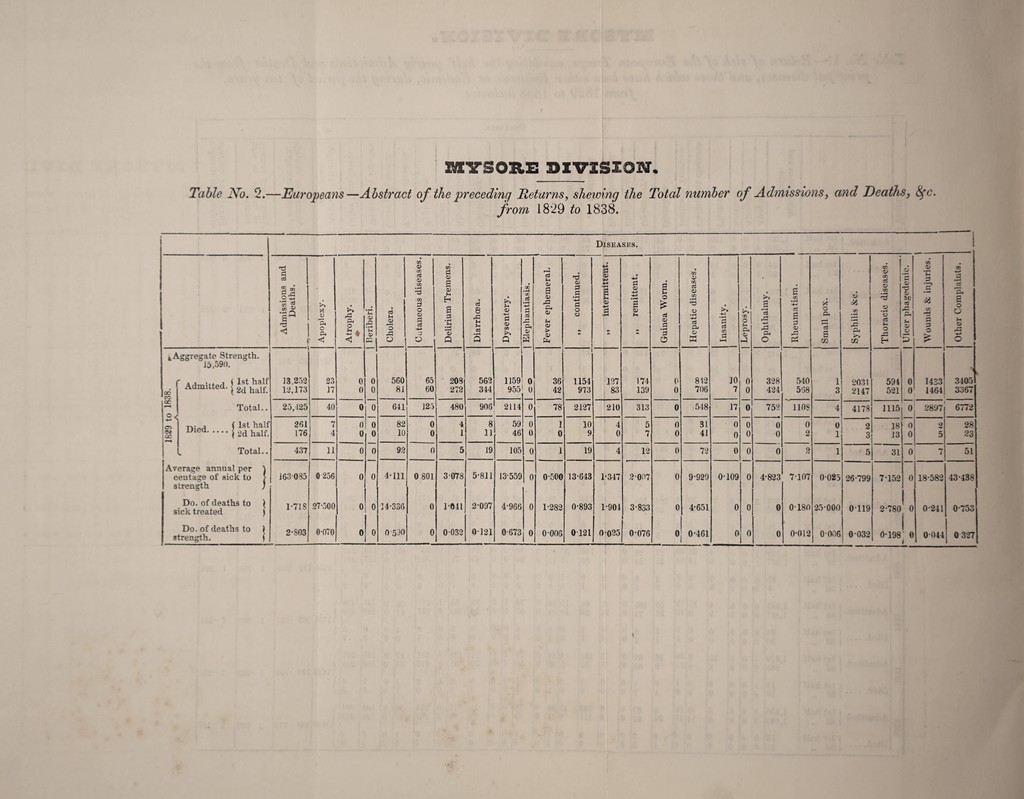 MYSORE DIVISION.
Table No. 2.—Europeans—Abstract of the preceding Returns, shewing the Total number of Admissions, and Deaths, &c.
from 1829 to 1838.
Diseases.
Admissions and Deaths. Apoplexy. Atrophy. Beriberi. Cholera. Cutaneous diseases. Delirium Tremens. Diarrhœa. Dysentery. Elephantiasis. Fever ephemeral. ,, continued. ,, intermittent. ,, remittent. Guinea Worm. Hepatic diseases. Insanity. Leprosy. Ophthalmy. Rheumatism. Small pox. Syphilis &c. Thoracic diseases. Ulcer phagedenic. Wounds & injuries. Other Complaints.
Aggregate Strength.
15,590.
1829 to 1838.
Admitted. 1st half 13,252 23 0 0 560 65 208 562 1159 0 36 1154 127 174 0 842 10 0 328 540 1 2031 594 0 1433 3405
2d half. 12,173 17 0 0 81 60 272 344 955 0 42 973 83 139 0 706 7 0 424 568 3 2147 521 0 1464 3367
Total.. 25,425 40 0 0 641 125 480 906 2114 0 78 2127 210 313 0 548 17 0 752 1108 4 4178 1115 0 2897 6772
Died..... 1st half 261 7 0 0 82 0 4 8 59 0 1 10 4 5 0 31 0 0 0 0 0 2 18 0 2 28
2d half. 176 4 0 0 10 0 1 11 46 0 0 9 0 7 0 41 0 0 0 2 1 3 13 0 5 23
Total.. 437 11 0 0 92 0 5 19 105 0 1 19 4 12 0 72 0 0 0 2 1 5 31 0 7 51
Average annual per centage of sick to strength 163·085 0 256 0 0 4·111 0 801 3·078 5·811 13·559 0 0·500 13·643 1·347 2·007 0 9·929 0·109 0 4·823 7·107 0·025 26·799 7·152 0 18·582 43·438
Do. of deaths to sick treated 1·718 27·500 0 0 14·336 0 1·041 2·097 4·966 0 1·282 0·893 1·904 3·833 0 4·651 0 0 0 0·180 25·000 0·119 2·780 0 0·241 0·753
Do. of deaths to strength. 2·803 0·070 0 0 0·590 0 0·032 0·121 0·673 0 0·006 0·121 0·025 0·076 0 0·461 0 0 0 0·012 0·006 0·032 0·198 0 0·044 0 327